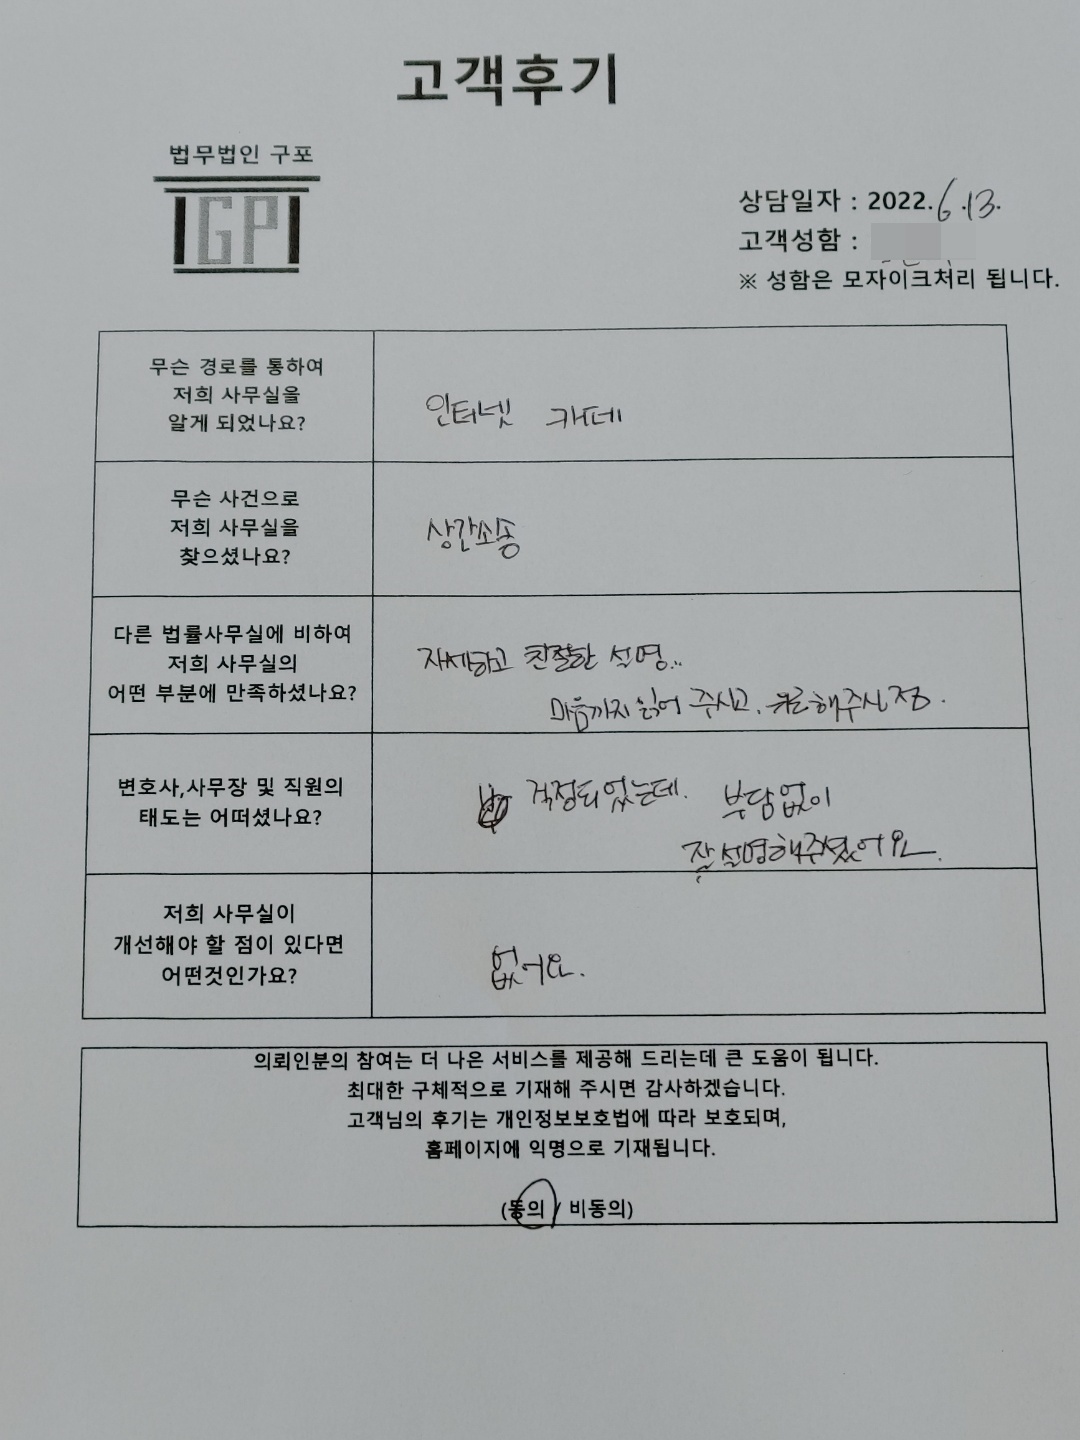 고객후기
법무법인 구포
GP
상담일자 : 2022. 6. 13.
고객성함 :
※ 성함은 모자이크처리 됩니다.
무슨 경로를 통하여
저희 사무실을
알게 되었나요?
인터넷 카페
무슨 사건으로
저희 사무실을
찾으셨나요?
상간소송
다른 법률사무실에 비하여
저희 사무실의
어떤 부분에 만족하셨나요?
자세하고 친절한 설명..
마음까지 읽어 주시고, 해주신점.
변호사,사무장 및 직원의
태도는 어떠셨나요?
걱정되었는데. 부담없이
잘 설명해주셨어요.
저희 사무실이
개선해야 할 점이 있다면
어떤것인가요?
없어요.
의뢰인분의 참여는 더 나은 서비스를 제공해 드리는데 큰 도움이 됩니다.
최대한 구체적으로 기재해 주시면 감사하겠습니다.
고객님의 후기는 개인정보보호법에 따라 보호되며,
홈페이지에 익명으로 기재됩니다.
(동의 / 비동의)